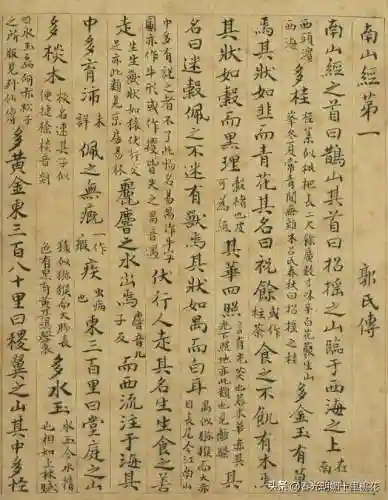 南山經第一 郭氏傳
南山經之首曰䧿山其首曰招搖之山臨于西海之上 在南
西頭濱西海 多桂 桂葉似枇杷長二尺餘廣數寸味辛白花叢生山峯冬夏常青間無雜木呂氏春秋曰招搖之桂 多金玉有草
焉其狀如韭而青花其名曰祝餘 或作桂荼 食之不飢有木焉
其狀如穀而黑理 穀楮也皮可為紙 其華四照 言有光炎也若木華赤其光下照地亦此類也見離騷 其
名曰迷穀佩之不迷有獸焉其狀如禺而白耳 禺似獼猴而大赤目長尾今江南山
中多有說之者不了此物名禺作牛字圖亦作牛形或作猴皆失之禺音遇 伏行人走其名生生食之善
走 生生獸狀如猿伏行交足亦此類見京房易林 麗𪊨之水出焉 𪊨音几子反 而西流注于海其
中多育沛 未詳 佩之無瘕 一作癥 疾 虫病也 東三百里曰堂庭之山
多棪木 棪名連其子似便捷棪音剡 猿似獼猴而大腳長色有黑有黃其鳴聲哀 多水玉 水玉今水精也相如上林賦
曰水玉磊砢赤松子之所服見列仙傳 多黃金東三百八十里曰稷翼之山其中多怪